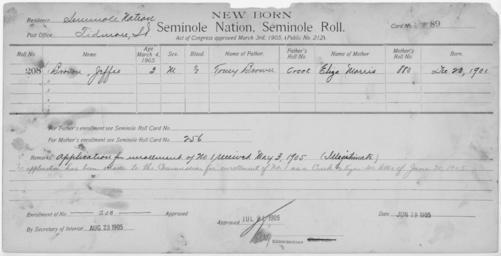 NEW BORN
Residence Seminole Nation
Seminole Nation, Seminole Roll.
Card No. 89
Post Office Tidmore, I.T.
Act of Congress approved March 3rd, 1905, (Public No. 212).
Roll No. Name Age March 4, 1905 Sex. Blood. Name of Father. Father's Roll No. Name of Mother Mother's Roll No. Born.
208 Brown, Jeffie 2 M Toney Brown Creek Eliza Morris 880 Dec 1901
For Father's enrollment see Seminole Roll Card No.
For Mother's enrollment see Seminole Roll Card No. 256
Remarks: Application for enrollment of No 1 received May 3, 1905 (Illegitimate)
application has been made to the Commission for enrollment of No 1 as a Creek citizen. See letter of June 20, 1905
Enrollment of No. 208 Approved
By Secretary of Interior AUG 23 1905
Approved JUL 1905
Commissioner
Date JUN 29 1905